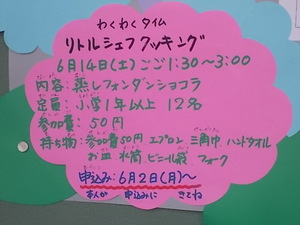 わくわくタイム
リトルシェフクッキング
6月14日(土)ごご1:30〜3:00
内容:蒸しフォンダンショコラ
定員:小学1年以上 12名
参加費:50円
持ち物:参加費50円 エプロン 三角巾 ハンドタオル
お皿 水筒 ビニール袋 フォーク
申込み:6月2日(月)〜
申込みに きてね